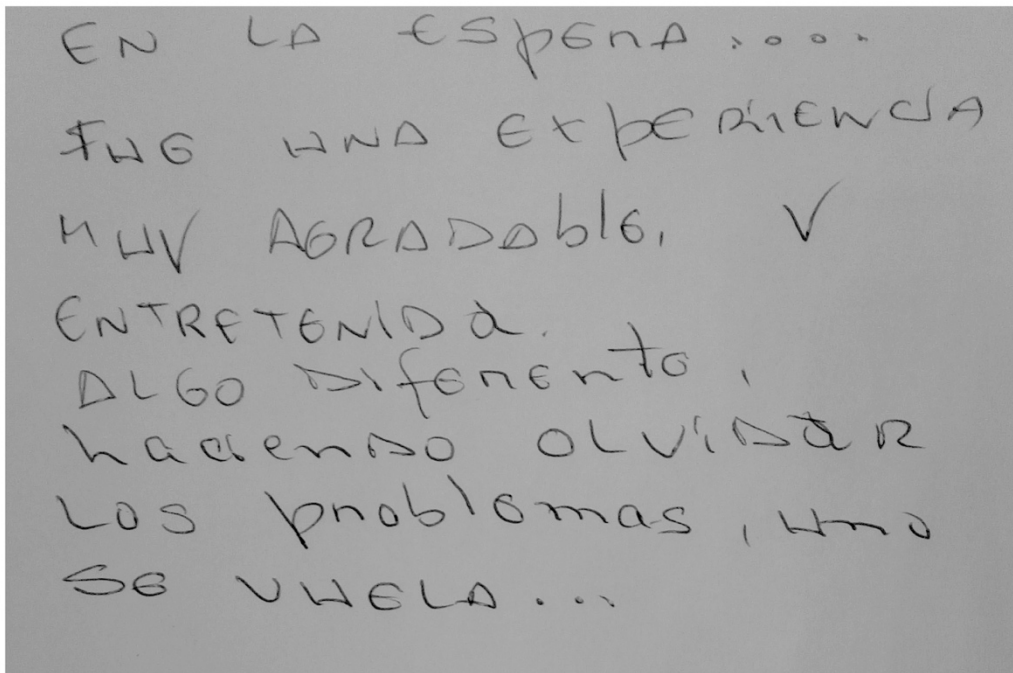 EN LA ESpERA.....
FUE UNA EXpERiENCiA
MUY AGRADAblE, Y
ENTRETENIDa.
ALGO DifeRente,
haciendo OLViDaR
LOS pRoblemas, uno
SE VUELA...